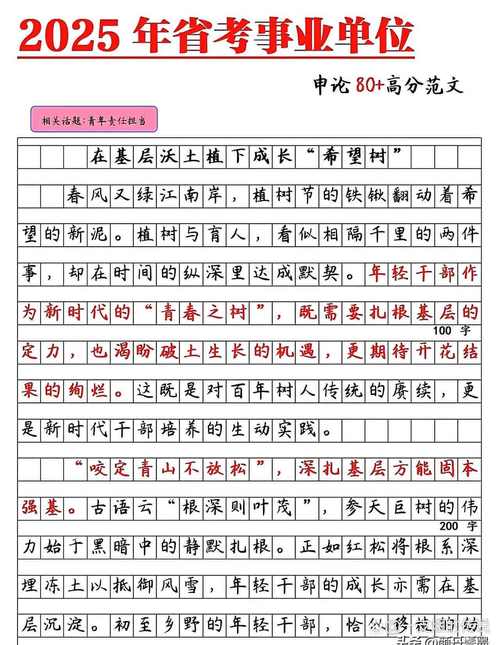 2025年省考事业单位
申论80+高分范文
相关话题:青年责任担当
在基层沃土植下成长“希望树”
春风又绿江南岸，植树节的铁锹翻动着希
望的新泥。植树与育人，看似相隔千里的两件
事，却在时间的纵深里达成默契。年轻干部作
为新时代的“青春之树”，既需要扎根基层的
100 字
定力，也渴盼破土生长的机遇，更期待开花结
果的绚烂。这既是对百年树人传统的赓续，更
是新时代干部培养的生动实践。
“咬定青山不放松”，深扎基层方能固本
强基。古语云“根深则叶茂”，参天巨树的伟
200 字
力始于黑暗中的静默扎根。正如红松将根系深
埋冻土以抵御风雪，年轻干部的成长亦需在基
层沉淀。初至乡野的年轻干部，恰似移
头条